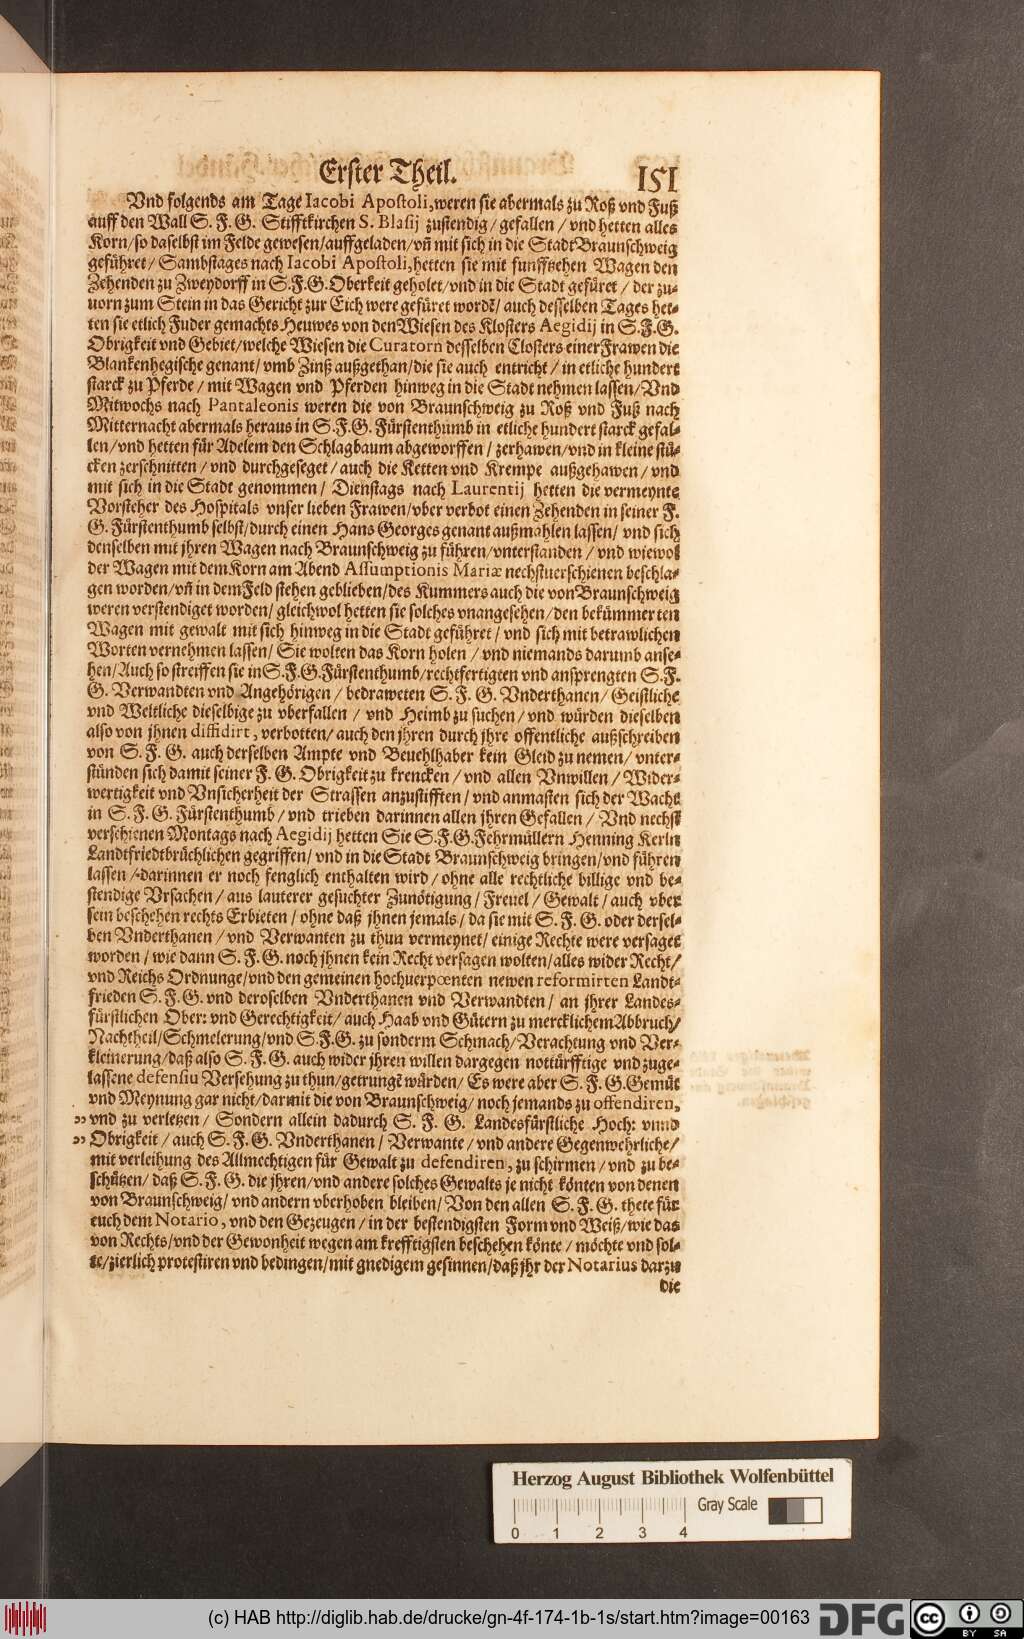 Erster Theil. 151
Vnd folgends am Tage Iacobi Apostoli, weren sie abermals zu Roß vnd Fuß
auff den Wall S. F. G. Stifftkirchen S. Blasij zustendig / gefallen / vnd hetten alles
Korn / so daselbst im Felde gewesen / auffgeladen / vñ mit sich in die Stadt Braunschweig
geführet / Sambstages nach Iacobi Apostoli, hetten sie mit funfftzehen Wagen den
Zehenden zu Zweydorff in S. F. G. Oberkeit geholet / vnd in die Stadt gefüret / der zu-
uorn zum Stein in das Gericht zur Eich were gefüret wordẽ / auch desselben Tages het-
ten sie etlich Fuder gemachts Heuwes von den Wiesen des Klosters Aegidij in S. F. G.
Obrigkeit vnd Gebiet / welche Wiesen die Curatorn desselben Closters einer Frawen die
Blankenhegische genant / vmb Zinß außgethan / die sie auch entricht / in etliche hundert
starck zu Pferde / mit Wagen vnd Pferden hinweg in die Stadt nehmen lassen / Vnd
Mitwochs nach Pantaleonis weren die von Braunschweig zu Roß vnd Fuß nach
Mitternacht abermals heraus in S. F. G. Fürstenthumb in etliche hundert starck gefal-
len / vnd hetten für Adelem den Schlagbaum abgeworffen / zerhawen / vnd in kleine stü-
cken zerschnitten / vnd durchgeseget / auch die Ketten vnd Krempe außgehawen / vnd
mit sich in die Stadt genommen / Dienstags nach Laurentij hetten die vermeynte
Vorsteher des Hospitals vnser lieben Frawen / vber verbot einen Zehenden in seiner F.
G. Fürstenthumb selbst / durch einen Hans Georges genant außmahlen lassen / vnd sich
denselben mit jhren Wagen nach Braunschweig zu führen / vnterstanden / vnd wiewol
der Wagen mit dem Korn am Abend Assumptionis Mariæ nechstuerschienen beschla-
gen worden / vñ in dem Feld stehen geblieben / des Kummers auch die von Braunschweig
weren verstendiget worden / gleichwol hetten sie solches vnangesehen / den bekümmerten
Wagen mit gewalt mit sich hinweg in die Stadt geführet / vnd sich mit betrawlichen
Worten vernehmen lassen / Sie wolten das Korn holen / vnd niemands darumb anse-
hen / Auch so streiffen sie in S. F. G. Fürstenthumb / rechtfertigten vnd ansprengten S. F.
G. Verwandten vnd Angehörigen / bedraweten S. F. G. Vnderthanen / Geistliche
vnd Weltliche dieselbige zu vberfallen / vnd Heimb zu suchen / vnd würden dieselben
also von jhnen diffidirt, verbotten / auch den jhren durch jhre offentliche außschreiben
von S. F. G. auch derselben Ampte vnd Beuehlhaber kein Gleid zu nemen / vnter-
stünden sich damit seiner F. G. Obrigkeit zu krencken / vnd allen Vnwillen / Wider-
wertigkeit vnd Vnsicherheit der Strassen anzustifften / vnd anmasten sich der Wacht
in S. F. G. Fürstenthumb / vnd trieben darinnen allen jhren Gefallen / Vnd nechst
verschienen Montags nach Aegidij hetten Sie S. F. G. Fehrmüllern Henning Kerln
Landtfriedtbrüchlichen gegriffen / vnd in die Stadt Braunschweig bringen / vnd führen
lassen / darinnen er noch fenglich enthalten wird / ohne alle rechtliche billige vnd be-
stendige Vrsachen / aus lauterer gesuchter Zunötigung / Freuel / Gewalt / auch vber
sein beschehen rechts Erbieten / ohne daß jhnen jemals / da sie mit S. F. G. oder dersel-
ben Vnderthanen / vnd Verwanten zu thun vermeynet / einige Rechte were versaget
worden / wie dann S. F. G. noch jhnen kein Recht versagen wolten / alles wider Recht /
vnd Reichs Ordnunge / vnd den gemeinen hochuerpœnten newen reformirten Landt-
frieden S. F. G. vnd deroselben Vnderthanen vnd Verwandten / an jhrer Landes-
fürstlichen Ober: vnd Gerechtigkeit / auch Haab vnd Gütern zu mercklichem Abbruch /
Nachtheil / Schmelerung / vnd S. F. G. zu sonderm Schmach / Verachtung vnd Ver-
kleinerung / daß also S. F. G. auch wider jhren willen dargegen nottürfftige vnd zuge-
lassene defensiu Versehung zu thun / getrungẽ würden / Es were aber S. F. G. Gemüt
vnd Meynung gar nicht / darmit die von Braunschweig / noch jemands zu offendiren,
„ vnd zu verletzen / Sondern allein dadurch S. F. G. Landesfürstliche Hoch: vnnd
„ Obrigkeit / auch S. F. G. Vnderthanen / Verwante / vnd andere Gegenwehrliche /
mit verleihung des Allmechtigen für Gewalt zu defendiren, zu schirmen / vnd zu be-
schützen / daß S. F. G. die jhren / vnd andere solches Gewalts je nicht könten von denen
von Braunschweig / vnd andern vberhoben bleiben / Von den allen S. F. G. thete für
euch dem Notario, vnd den Gezeugen / in der bestendigsten Form vnd Weiß / wie das
von Rechts / vnd der Gewonheit wegen am krefftigsten beschehen könte / möchte vnd sol-
te / zierlich protestiren vnd bedingen / mit gnedigem gesinnen / daß jhr der Notarius darzu
die
Herzog August Bibliothek Wolfenbüttel
Gray Scale
0 1 2 3 4
(c) HAB http://diglib.hab.de/drucke/gn-4f-174-1b-1s/start.htm?image=00163 DFG cc BY SA